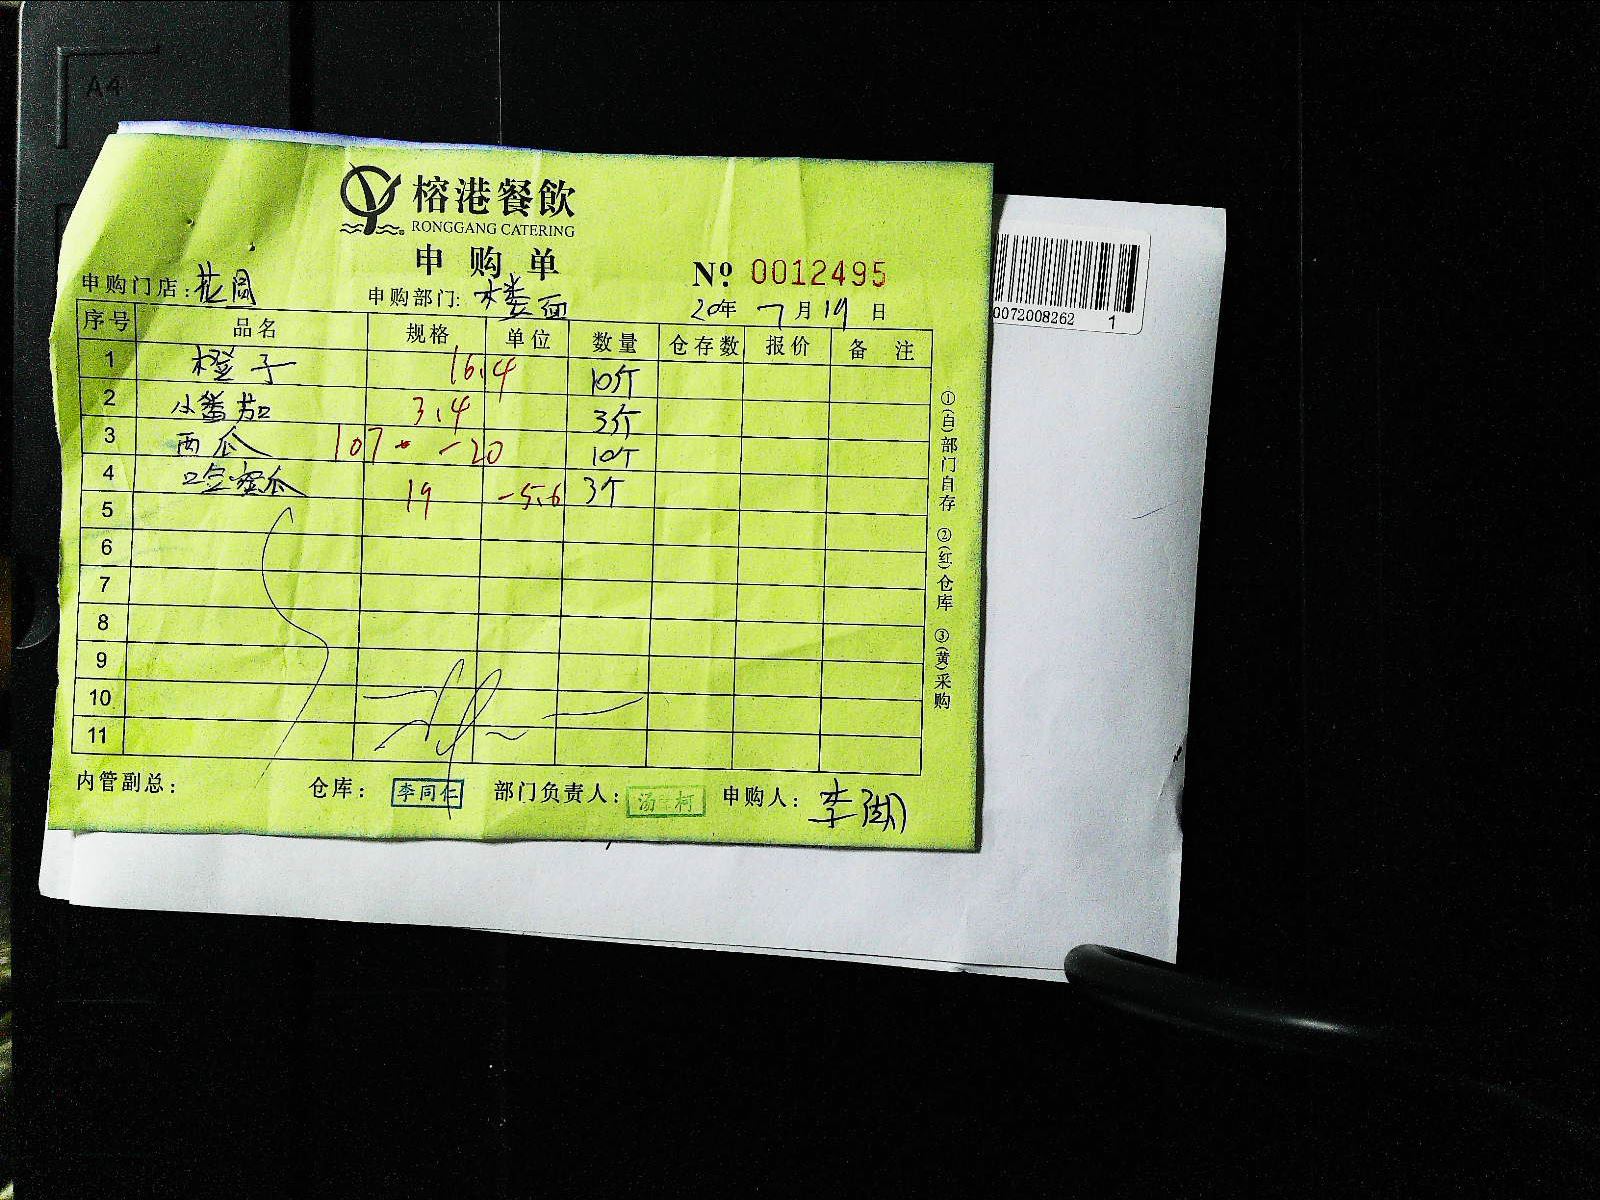 A4
榕港餐飲
RONGGANG CATERING
申购单
№ 0012495
申购门店: 花园
申购部门: 楼面
20年 7月 19日
序号 品名 规格 单位 数量 仓存数 报价 备注
1 橙子 16.4 10斤
2 小番茄 3.4 3斤
3 西瓜 107 -20 10个
4 哈密瓜 19 -5.6 3个
5
6
7
8
9
10
11
①(白)部门自存 ②(红)仓库 ③(黄)采购
内管副总: 仓库: 李同仁 部门负责人: 申购人: 李湖
0072008262 1